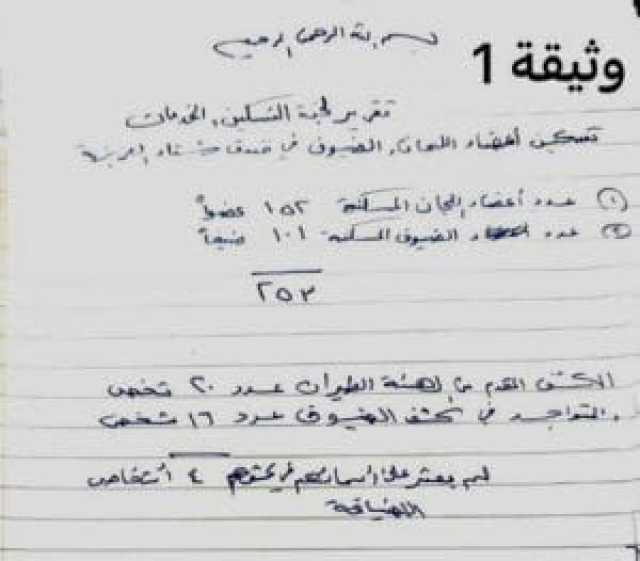 وثيقة 1
بسم الله الرحمن الرحيم
تقرير لجنة التسكين والخدمات
تسكين أعضاء اللجان والضيوف في فندق
١) عدد أعضاء اللجان المسكنة ١٥٢ عضواً
٢) عدد الضيوف المسكنة ١٠١ ضيفاً
٢٥٣
الكشف المقدم من لهيئة الطيران عدد ٢٠ شخص
المتواجد في كشف الضيوف عدد ١٦ شخص
لم يعثر على أسمائهم في ٤ أشخاص
الضيافة